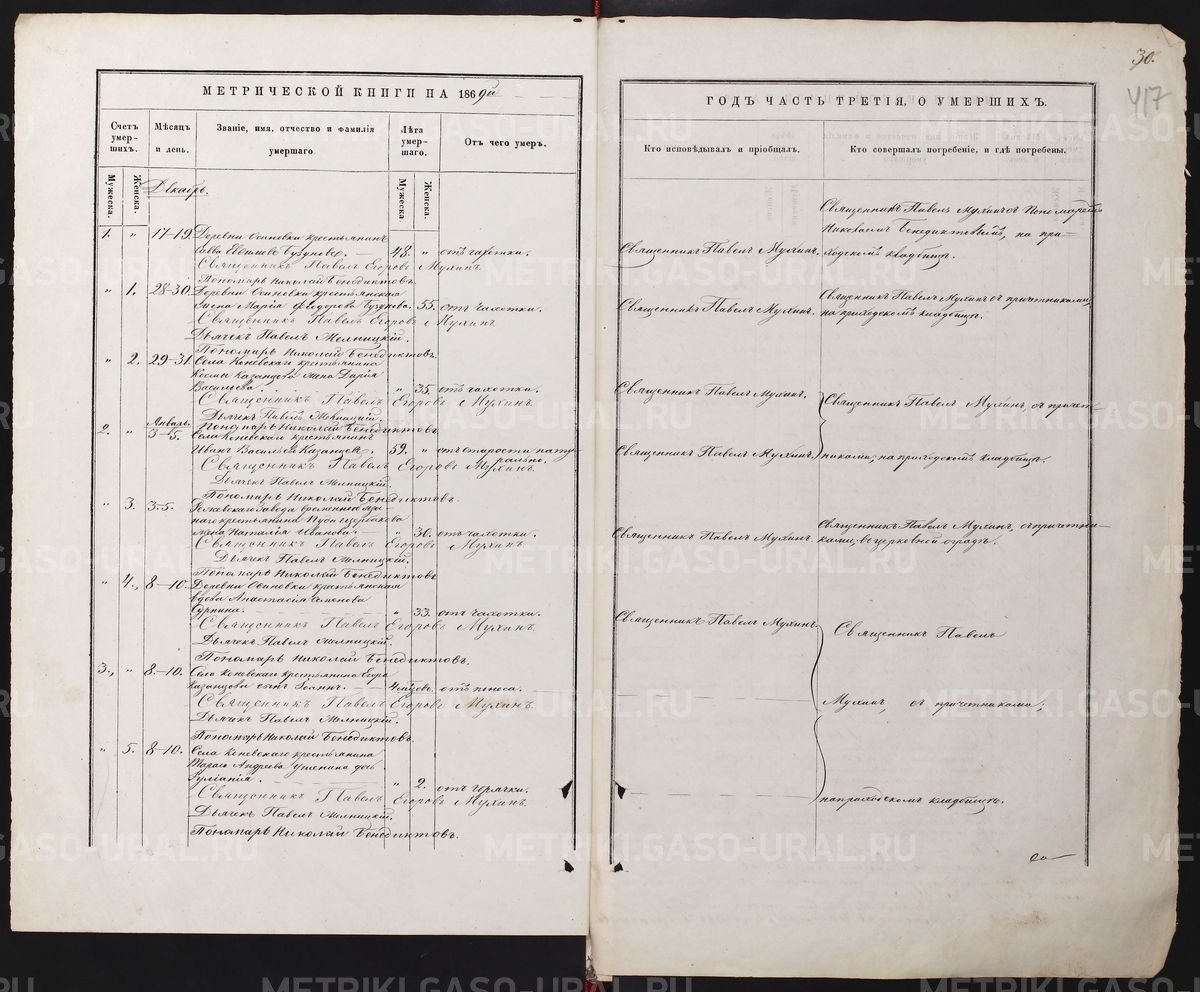 МЕТРИЧЕСКОЙ КНИГИ НА 1869й
Счетъ умершихъ.
Мѣсяцъ и день.
Званіе, имя, отчество и фамилія умершаго.
Лѣта умершаго.
Отъ чего умеръ.
Мужеска.
Женска.
Мужеска.
Женска.
Декабрь.
1. " 17-19. Деревни Осиновки крестьянинъ
Савва Евфимовъ 48. " отъ чахотки.
Священникъ Павелъ Егоровъ Мухинъ.
Пономарь Николай Бенедиктовъ.
" 1. 28-30. Деревни Осиновки крестьянская
жена Марія Ѳеодорова 55. отъ чахотки.
Священникъ Павелъ Егоровъ Мухинъ.
Дьячекъ Павелъ Мелницкій.
Пономарь Николай Бенедиктовъ.
" 2. 29-31. Села Коневскаго крестьянина
Космы Казанцова жена Дарія
Васильева. " 35. отъ чахотки.
Священникъ Павелъ Егоровъ Мухинъ.
Дьячекъ Павелъ Мелницкій.
Пономарь Николай Бенедиктовъ.
Январь.
2. " 3-5. Села Коневскаго крестьянинъ
Иванъ Васильевъ Казанцовъ. 59. " отъ старости нату-
рально.
Священникъ Павелъ Егоровъ Мухинъ.
Дьячекъ Павелъ Мелницкій.
Пономарь Николай Бенедиктовъ.
" 3. 3-5. завода временнообяза-
наго крестьянина
жена Наталія Иванова. " 30. отъ чахотки.
Священникъ Павелъ Егоровъ Мухинъ.
Дьячекъ Павелъ Мелницкій.
Пономарь Николай Бенедиктовъ
" 4. 8-10. Деревни Осиновки крестьянская
вдова Анастасія Семенова
Сурнина. " 33. отъ чахотки.
Священникъ Павелъ Егоровъ Мухинъ.
Дьячекъ Павелъ Мелницкій.
Пономарь Николай Бенедиктовъ.
3. " 8-10. Села Коневскаго крестьянина Егора
Казанцова сынъ Іоаннъ. 4 мѣсяцовъ. отъ поноса.
Священникъ Павелъ Егоровъ Мухинъ.
Дьячекъ Павелъ Мелницкій.
Пономарь Николай Бенедиктовъ.
" 5. 8-10. Села Коневскаго крестьянина
Андреева дочь
Іуліанія. " 2. отъ горячки.
Священникъ Павелъ Егоровъ Мухинъ.
Дьячекъ Павелъ Мелницкій.
Пономарь Николай Бенедиктовъ.
30.
417
ГОДЪ ЧАСТЬ ТРЕТІЯ, О УМЕРШИХЪ.
Кто исповѣдывалъ и пріобщалъ.
Кто совершалъ погребеніе, и гдѣ погребены.
Священникъ Павелъ Мухинъ съ Пономаремъ
Николаемъ Бенедиктовымъ, на при-
Священникъ Павелъ Мухинъ. ходскомъ кладбищѣ.
Священникъ Павелъ Мухинъ съ причетниками,
Священникъ Павелъ Мухинъ. на приходскомъ кладбищѣ.
Священникъ Павелъ Мухинъ.
Священникъ Павелъ Мухинъ, съ причет-
Священникъ Павелъ Мухинъ. никами, на приходскомъ кладбищѣ.
Священникъ Павелъ Мухинъ, съ причетни-
Священникъ Павелъ Мухинъ. ками, въ церковной оградѣ.
Священникъ Павелъ Мухинъ.
Священникъ Павелъ
Мухинъ, съ причетниками,
на приходскомъ кладбищѣ.
METRIKI.GASO-URAL.RU